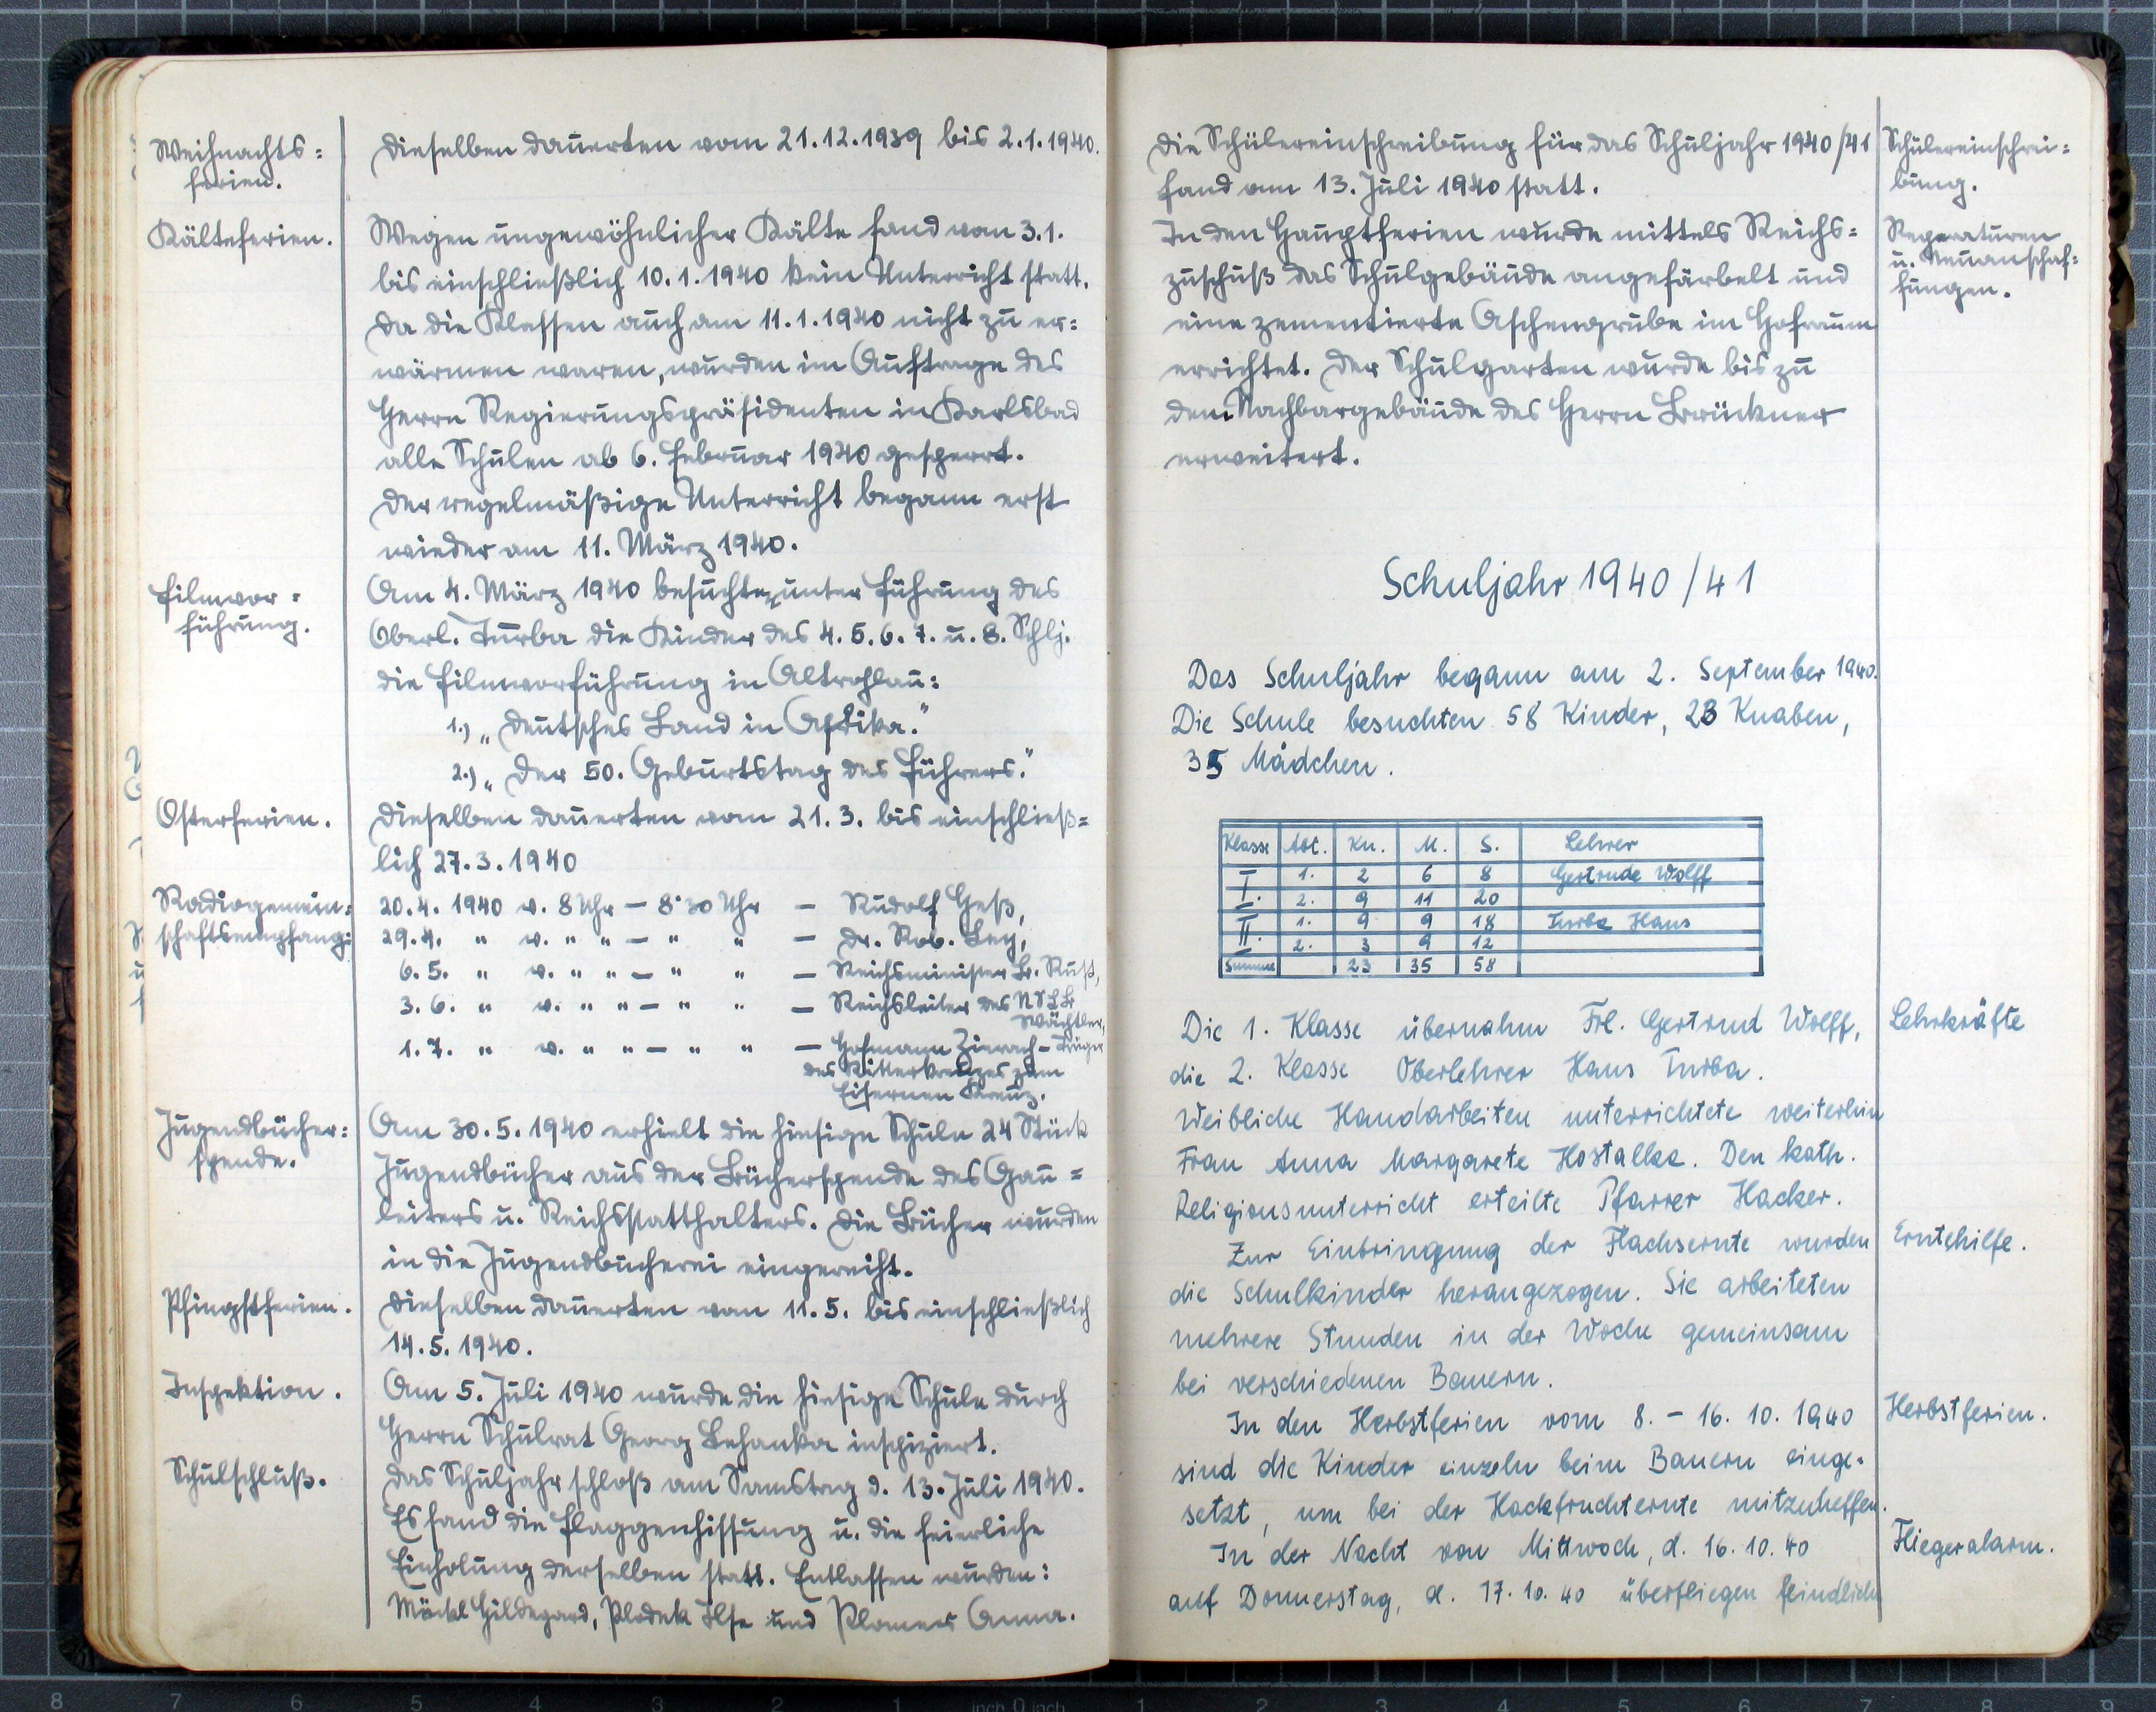 Weihnachts=
ferien.
Dieselben dauerten vom 21.12.1939 bis 2.1.1940.
Kälteferien.
Wegen ungewöhnlicher Kälte fand vom 3.1.
bis einschließlich 10.1.1940 kein Unterricht statt.
Da die Klassen auch am 11.1.1940 nicht zu er=
wärmen waren, wurden im Auftrage des
Herrn Regierungspräsidenten in Karlsbad
alle Schulen ab 6. Februar 1940 gesperrt.
Der regelmäßige Unterricht begann erst
wieder am 11. März 1940.
Filmvor=
führung.
Am 4. März 1940 besuchten unter Führung des
Oberl. Turba die Kinder des 4. 5. 6. 7. u. 8. Schlj.
die Filmvorführung in Altrohlau:
1.) „Deutsches Land in Afrika."
2.) „Der 50. Geburtstag des Führers."
Osterferien.
Dieselben dauerten vom 21.3. bis einschließ=
lich 27.3.1940
Radiogemein=
schaftsempfang:
20.4. 1940 v. 8 Uhr – 8·30 Uhr – Rudolf Heß,
29.4. " v. " " – " " – Dr. Rob. Ley,
6.5. " v. " " – " " – Reichsminister B. Rust,
3.6. " v. " " – " " – Reichsleiter des NSLB
Wächtler,
1.7. " v. " " – " " – Hofmann Zierach – Träger
des Ritterkreuzes zum
Eisernen Kreuz.
Jugendbücher=
spende.
Am 30.5.1940 erhielt die hiesige Schule 24 Stück
Jugendbücher aus der Bücherspende des Gau=
leiters u. Reichsstatthalters. Die Bücher wurden
in die Jugendbücherei eingereiht.
Pfingstferien.
Dieselben dauerten vom 11.5. bis einschließlich
14.5.1940.
Inspektion.
Am 5. Juli 1940 wurde die hiesige Schule durch
Herrn Schulrat Georg Behanka inspiziert.
Schulschluß.
Das Schuljahr schloß am Samstag d. 13. Juli 1940.
Es fand die Flaggenhissung u. die feierliche
Einholung derselben statt. Entlassen wurden:
Möckl Hildegard, Plodek Ilse und Plomer Anna.
Die Schülereinschreibung für das Schuljahr 1940/41
fand am 13. Juli 1940 statt.
Schülereinschrei=
bung.
In den Hauptferien wurde mittels Reichs=
zuschuß das Schulgebäude angefärbelt und
eine zementierte Aschengrube im Hofraum
errichtet. Der Schulgarten wurde bis zu
dem Nachbargebäude des Herrn Brückner
erweitert.
Reparaturen
u. Neuanschaf=
fungen.
Schuljahr 1940/41
Das Schuljahr begann am 2. September 1940.
Die Schule besuchten 58 Kinder, 23 Knaben,
35 Mädchen.
Klasse Abt. Kn. M. S. Lehrer
I. 1. 2 6 8 Gertrude Wolff
2. 9 11 20
II. 1. 9 9 18 Turba Hans
2. 3 9 12
Summe 23 35 58
Die 1. Klasse übernahm Frl. Gertrud Wolff,
die 2. Klasse Oberlehrer Hans Turba.
Weibliche Handarbeiten unterrichtete weiterhin
Frau Anna Margarete Hostalka. Den kath.
Religionsunterricht erteilte Pfarrer Hacker.
Lehrkräfte
Zur Einbringung der Flachsernte wurden
die Schulkinder herangezogen. Sie arbeiteten
mehrere Stunden in der Woche gemeinsam
bei verschiedenen Bauern.
Erntehilfe.
In den Herbstferien vom 8. – 16. 10. 1940
sind die Kinder einzeln beim Bauern einge-
setzt, um bei der Hackfruchternte mitzuhelfen.
Herbstferien.
In der Nacht von Mittwoch, d. 16.10.40
auf Donnerstag, d. 17.10.40 überfliegen feindliche
Fliegeralarm.
8 7 6 5 4 3 2 1 inch 0 inch 1 2 3 4 5 6 7 8 9